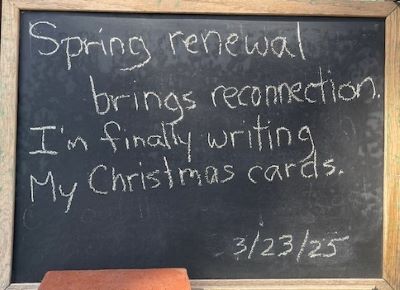 Spring renewal
brings reconnection.
I'm finally writing
My Christmas cards.
3/23/25